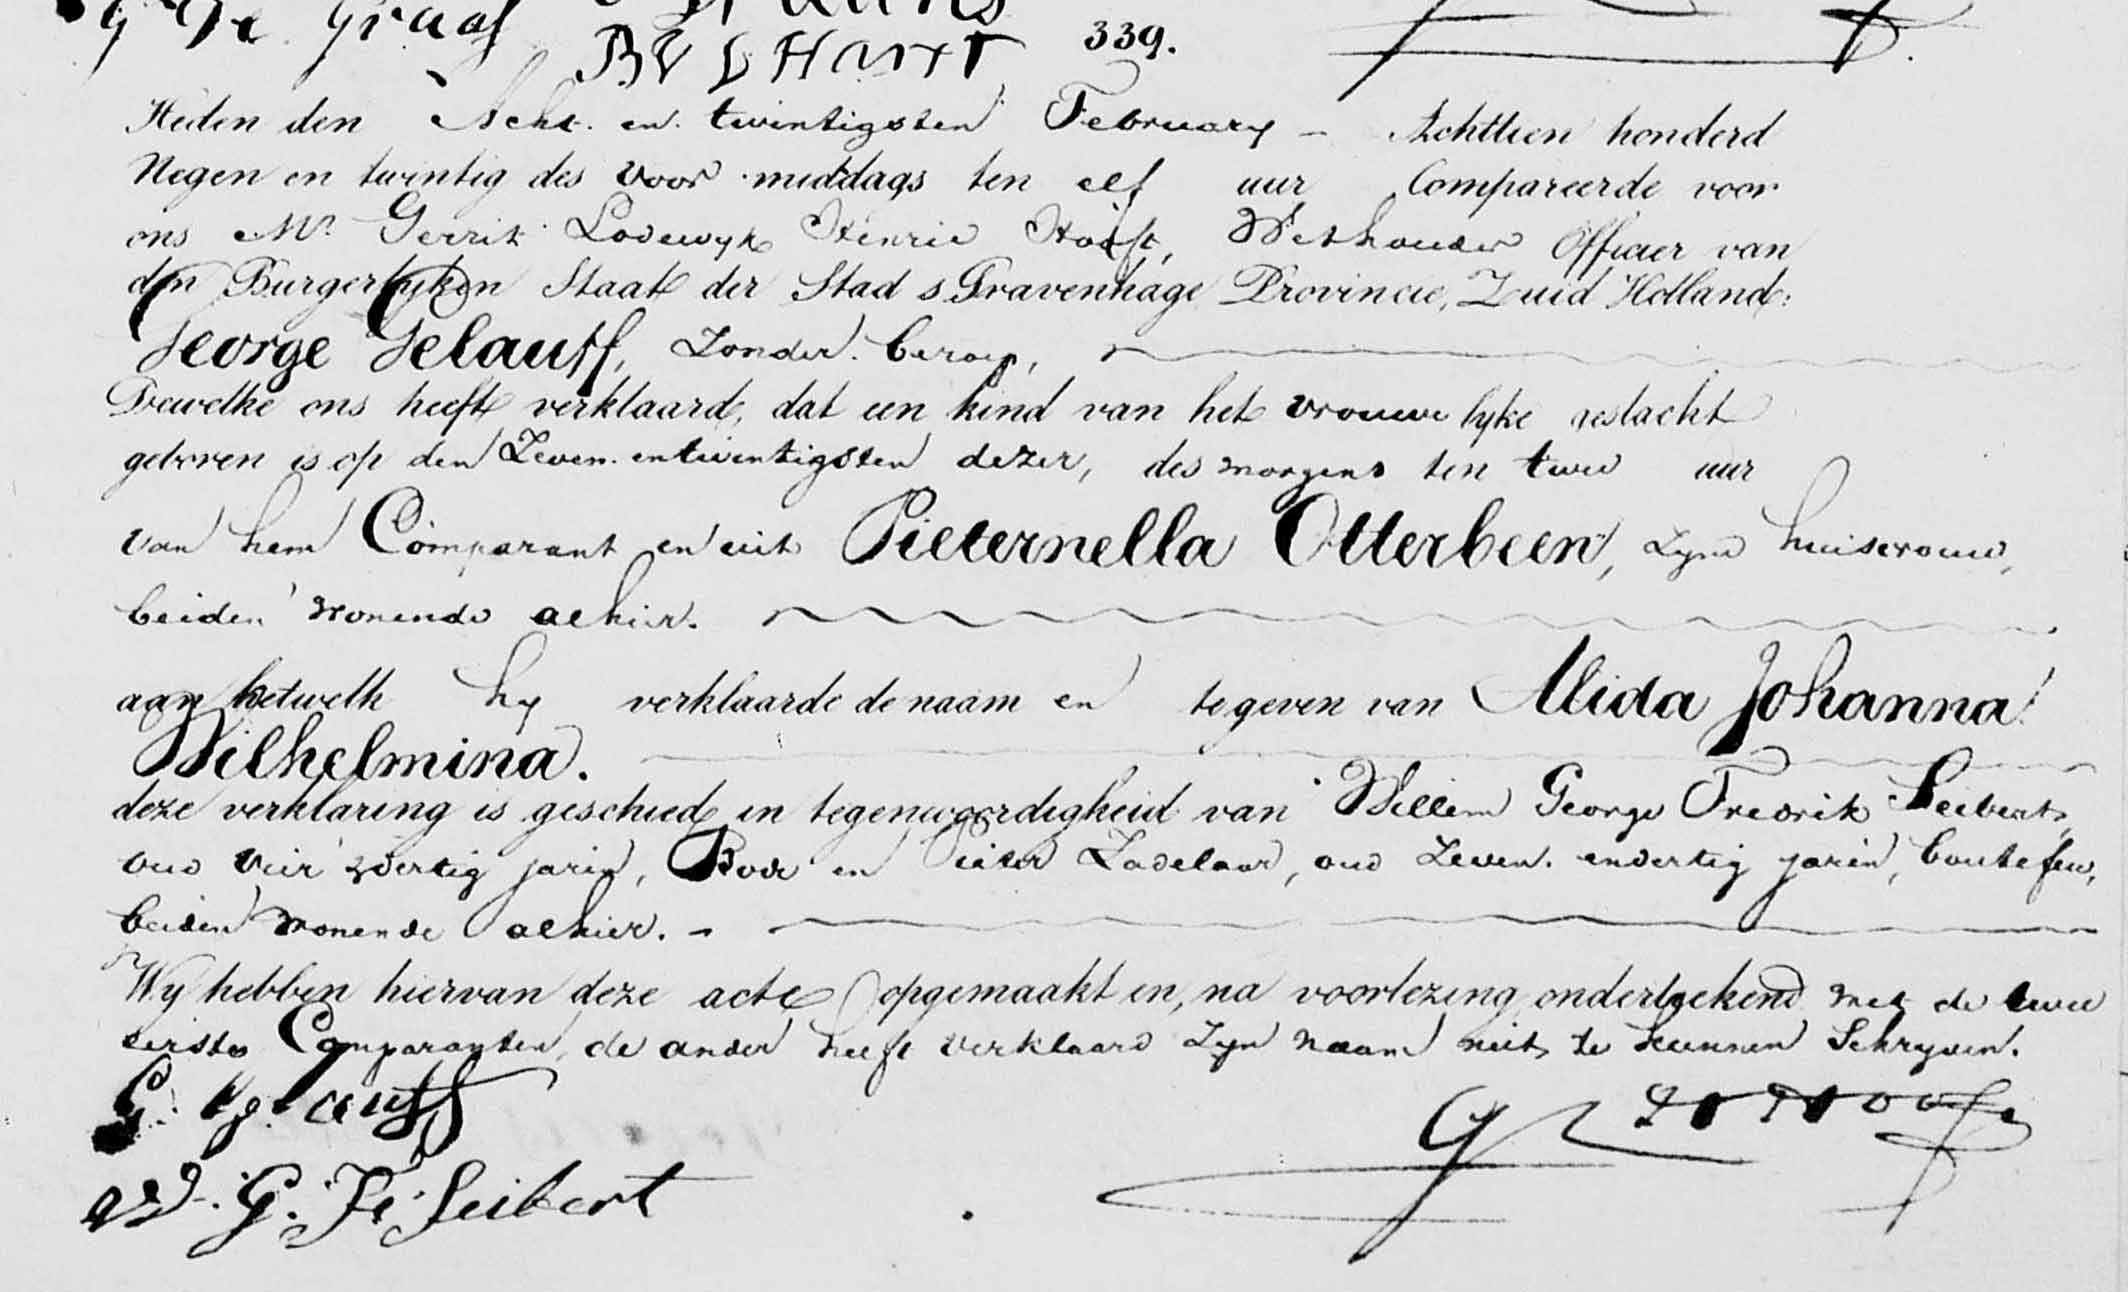 G De Graaf
339.
Heden den Acht en twintigsten February – Achttien honderd
Negen en twintig des voor middags ten elf uur Compareerde voor
ons Mr. Gerrit Lodewyk Henrie Hooft, Wethouder Officier van
den Burgerlyken Staat der Stad s Gravenhage Provincie, Zuid Holland:
George Gelauff, Zonder beroep,
Dewelke ons heeft verklaard, dat een kind van het vrouwe lyke geslacht
geboren is op den Zeven entwintigsten dezer, des morgens ten twee uur
van hem Comparant en uit Pieternella Otterbeen, zyne huisvrouw,
beiden wonende alhier.
aan hetwelk hy verklaarde de naam en te geven van Alida Johanna
Wilhelmina.
deze verklaring is geschied in tegenwoordigheid van Willem George Fredrik Seibert,
oud vier dertig jaren, Bode en Pieter Zadelaar, oud Zeven endertig jaren, boutefeu,
beiden wonende alhier. –
Wy hebben hiervan deze acte opgemaakt en, na voorlezing onderteekend met de twee
eerste Comparanten, de ander heeft verklaard zyn naam niet te kunnen Schryven.
G. Gelauff
W. G. F. Seibert